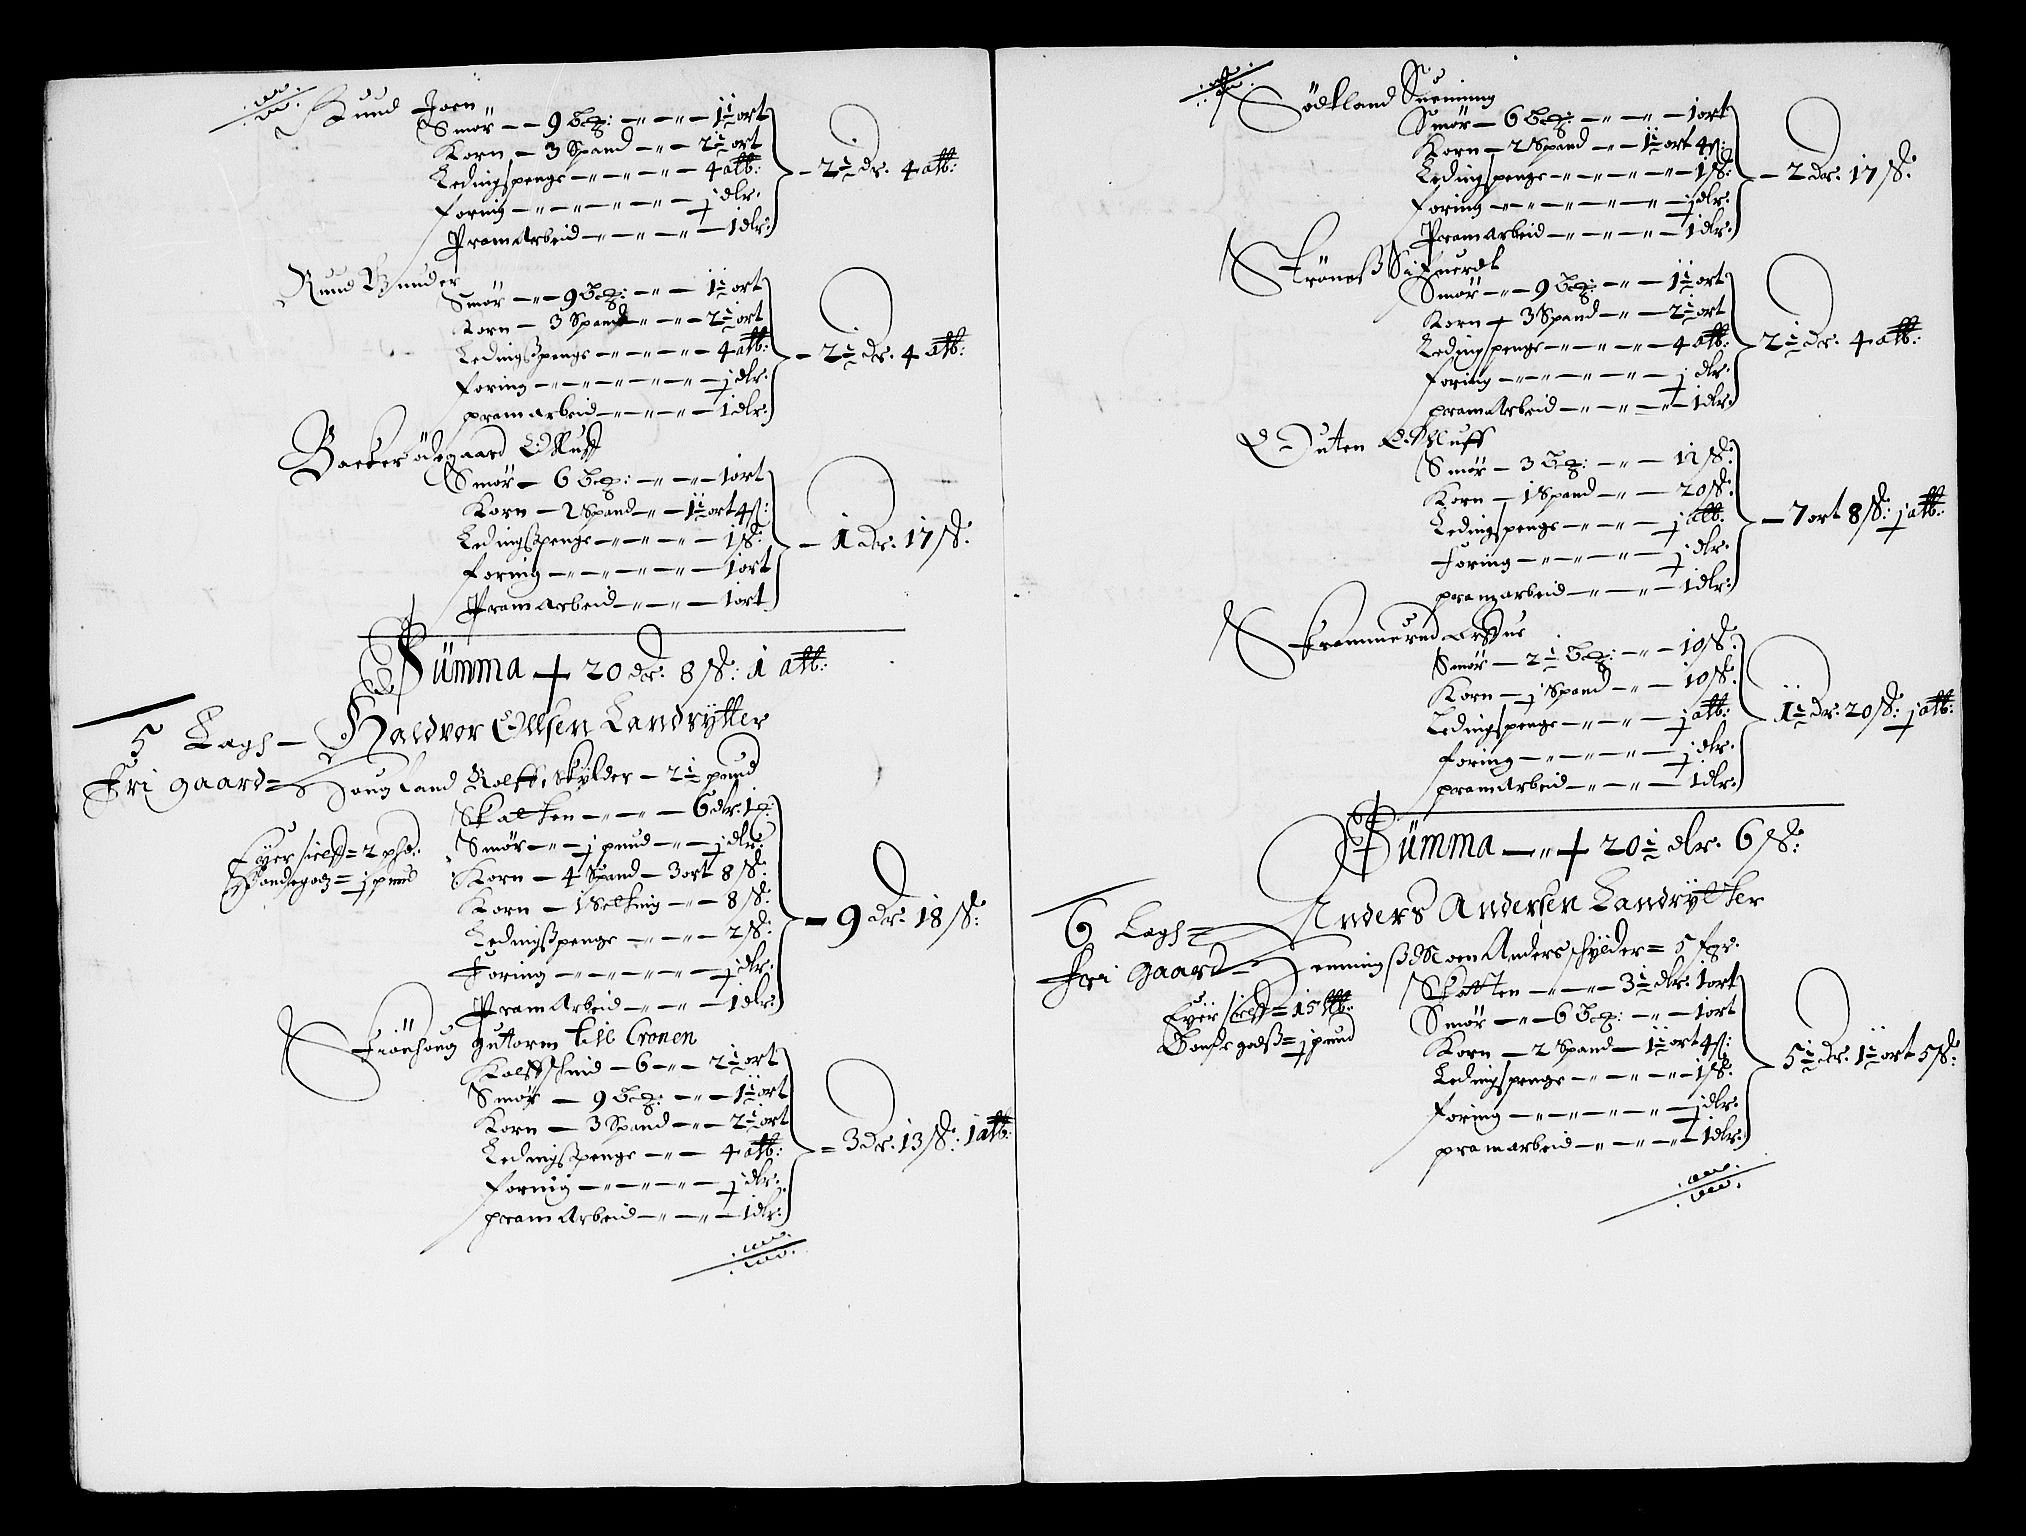 Rund Joen
Smør — 9 — 1½ ort
Korn — 3 Spand — 2½ ort
Ledingspenge — 4 alb:
Foring — j dlr.
Pramarbeid — 1 dlr:
— 2½ dr. 4 alb:
Rund Gunder
Smør — 9 — 1½ ort
Korn — 3 Spand — 2½ ort
Ledingspenge — 4 alb:
Foring — j dlr:
pramarbeid — 1 dlr:
— 2½ dr. 4 alb:
Backer ödegaard Olluff
Smør — 6 — 1 ort
Korn — 2 Spand — 1½ ort 4 ß:
Ledingspenge — 1 ß:
Foring — 1 ort
Pramarbeid — 1 ort
— 1 dr. 17 ß:
Sümma 20 dr. 8 ß: 1 alb:
5 Lags — Haldvor Ollsen Landrytter
Fri gaard = Hougland Rolff, skylder — 2½ pund
Eyer sielff = 2
Bondegodz = j pund
Skatten — 6 dlr. 1
Smør — j pund — j dlr:
Korn — 4 Spand — 3 ort 8 ß:
Korn — 1 Setting — 8 ß:
Ledingspenge — 2 ß:
Foring — j dlr:
Pramarbeid — 1 dlr:
— 9 dr. 18 ß:
Guttorm till Cronen
Kalffskind — 6 — 2½ ort
Smør — 9 — 1½ ort
Korn — 3 Spand — 2½ ort
Ledingspenge — 4 alb:
Foring — j dlr.
pramarbeid — 1 dlr:
= 3 dr. 13 ß. 1 alb:
Södtland Suenning
Smør — 6 — 1 ort
Korn — 2 Spand — 1½ ort 4 ß:
Ledingspenge — 1 ß:
Foring — j dlr:
Pramarbeid — 1 dlr:
— 2 dr. 17 ß:
Siffuerdt
Smør — 9 — 1½ ort
Korn — 3 Spand — 2½ ort
Ledingspenge — 4 alb:
Foring — j dlr:
pramarbeid — 1 dlr:
2½ dr. 4 alb:
Olluff
Smør — 3 — 12 ß:
Korn — 1 Spand — 20 ß:
Ledingspenge — j alb:
Foring — j dlr:
pramarbeid — 1 dlr:
— 7 ort 8 ß: j alb:
Smør — 2½ — 10 ß:
Korn — j Spand — 10 ß:
Ledingspenge — j alb:
Foring — j dlr:
pramarbeid — 1 dlr:
1½ dr. 20 ß: j alb:
Sümma — 20½ dlr. 6 ß:
6 Lags = Anders Andersen Landrytter
Fri gaard — Anders skylder = 5
Eyer sielff = 15
Bonde godß = j pund
Skatten — 3½ dlr. 1 ort
Smør — 6 — 1 ort
Korn — 2 Spand — 1½ ort 4 ß:
Ledingspenge — 1 ß:
Foring — j dlr:
pramarbeid — 1 dlr:
5½ dr. 1½ ort 5 ß: